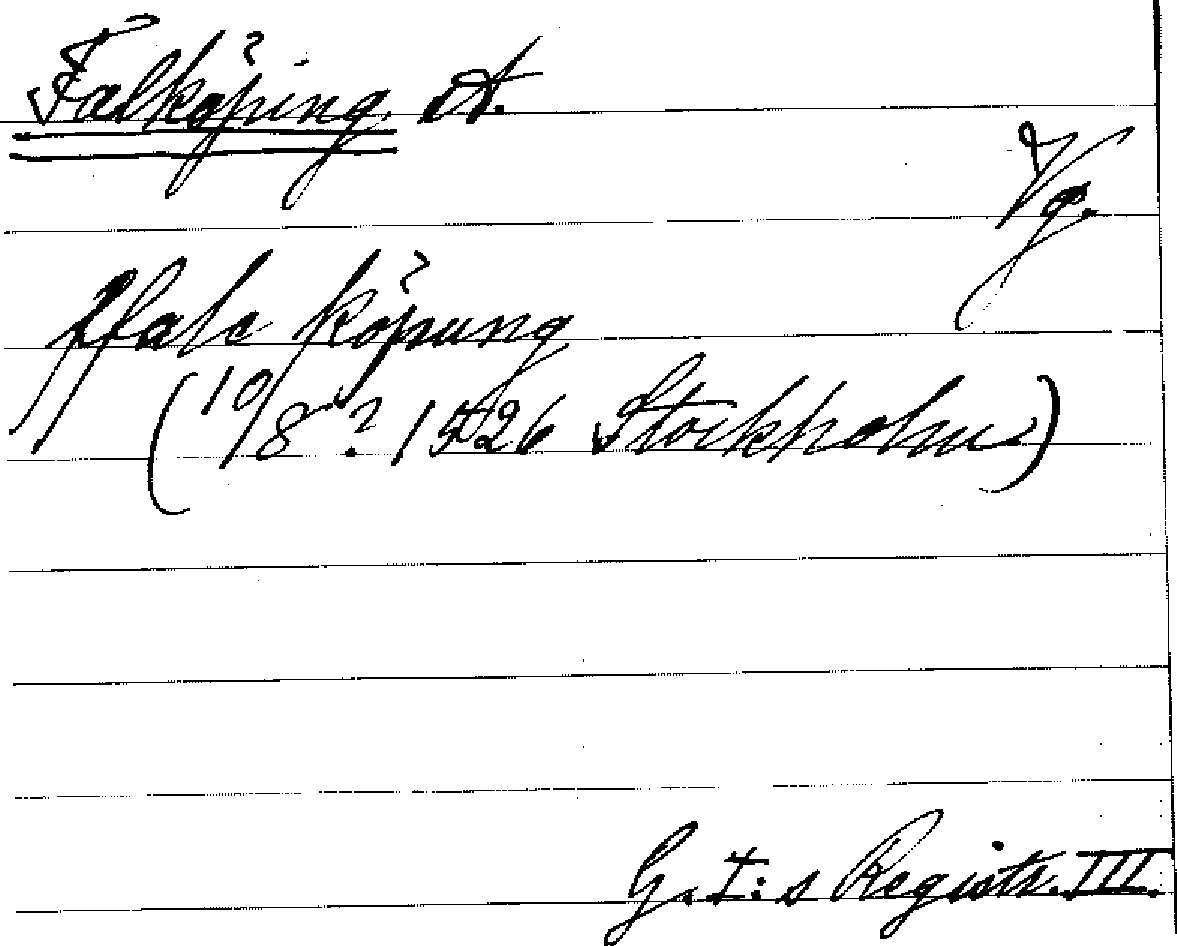 Falköping st.
Vg.
ffale köpung
(10/8 ? 1526 Stockholm)
G. I:s Registr. III.